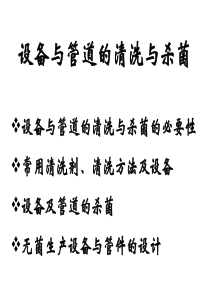 设备与管道的清洗与杀菌
❖设备与管道的清洗与杀菌的必要性
❖常用清洗剂、清洗方法及设备
❖设备及管道的杀菌
❖无菌生产设备与管件的设计